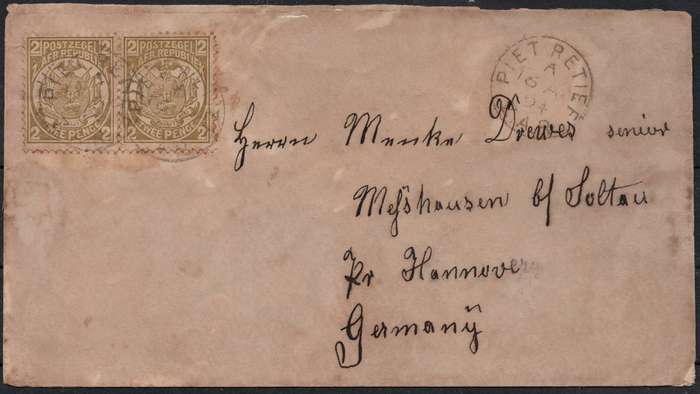 2 POSTZEGEL 2
AFR. REPUBLIEK
2 TWEE PENCE 2
2 POSTZEGEL 2
Z. AFR. REPUBLIEK
2 TWEE PENCE 2
PIET RETIEF
A
16
94
Z.A.R.
Herrn Menke Drewes senior
Meßhausen b/ Soltau
Pr Hannover
Germanÿ